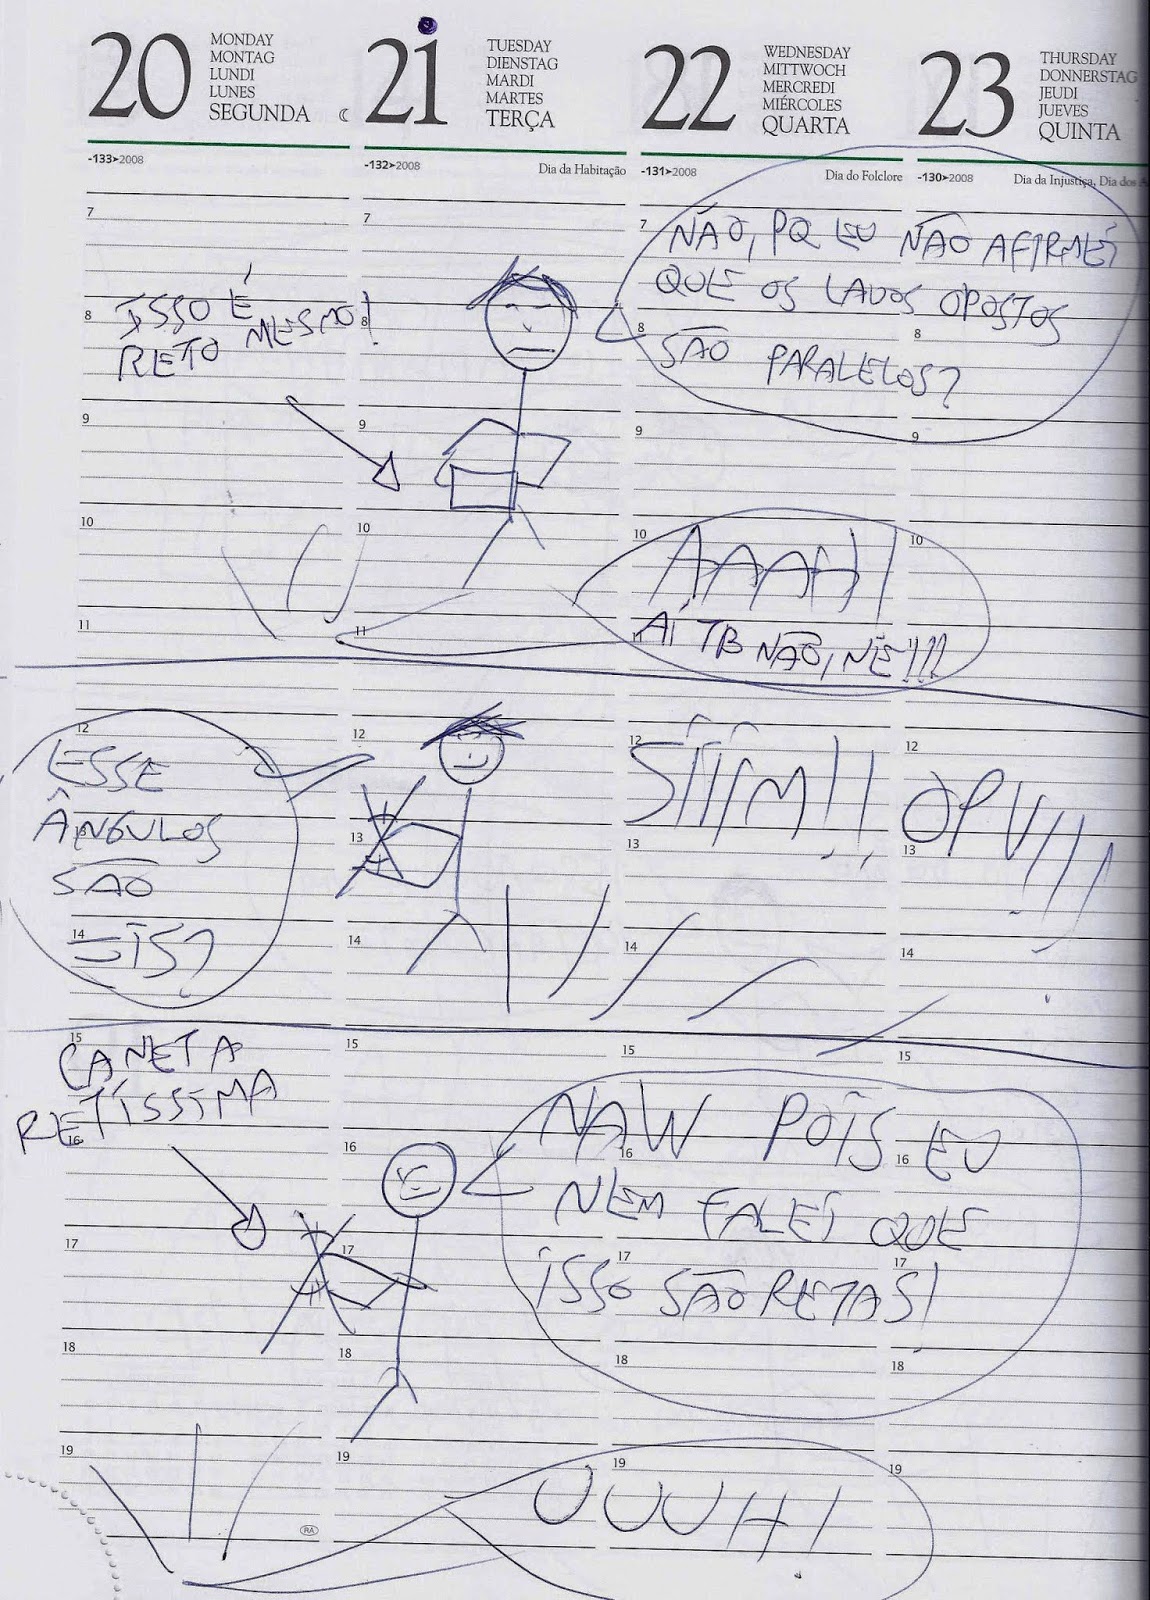 20
MONDAY
MONTAG
LUNDI
LUNES
SEGUNDA
21
TUESDAY
DIENSTAG
MARDI
MARTES
TERÇA
22
WEDNESDAY
MITTWOCH
MERCREDI
MIÉRCOLES
QUARTA
23
THURSDAY
DONNERSTAG
JEUDI
JUEVES
QUINTA
-133➤2008
-132➤2008
Dia da Habitação
-131➤2008
Dia do Folclore
-130➤2008
Dia da Injustiça, Dia dos
7 7 7
NÃO, PQ EU NÃO AFIRMEI
QUE OS LADOS OPOSTOS
SÃO PARALELOS?
ISSO É
RETO MESMO!
8 8 8 8
9 9 9 9
10 10 10 10
AAAH!
AÍ TB NÃO, NÉ!!!
11 11 11
12 12 12 12
ESSE
ÂNGULOS
SÃO
=IS?
SÍÍÍM!!
OPV!!!
13 13 13
14 14 14 14
15 15 15 15
CANETA
RETÍSSIMA
NAW POIS EU
NEM FALEI QUE
ISSO SÃO RETAS!
16 16 16 16
17 17 17 17
18 18 18 18
19 19 19 19
UUUH!
RA